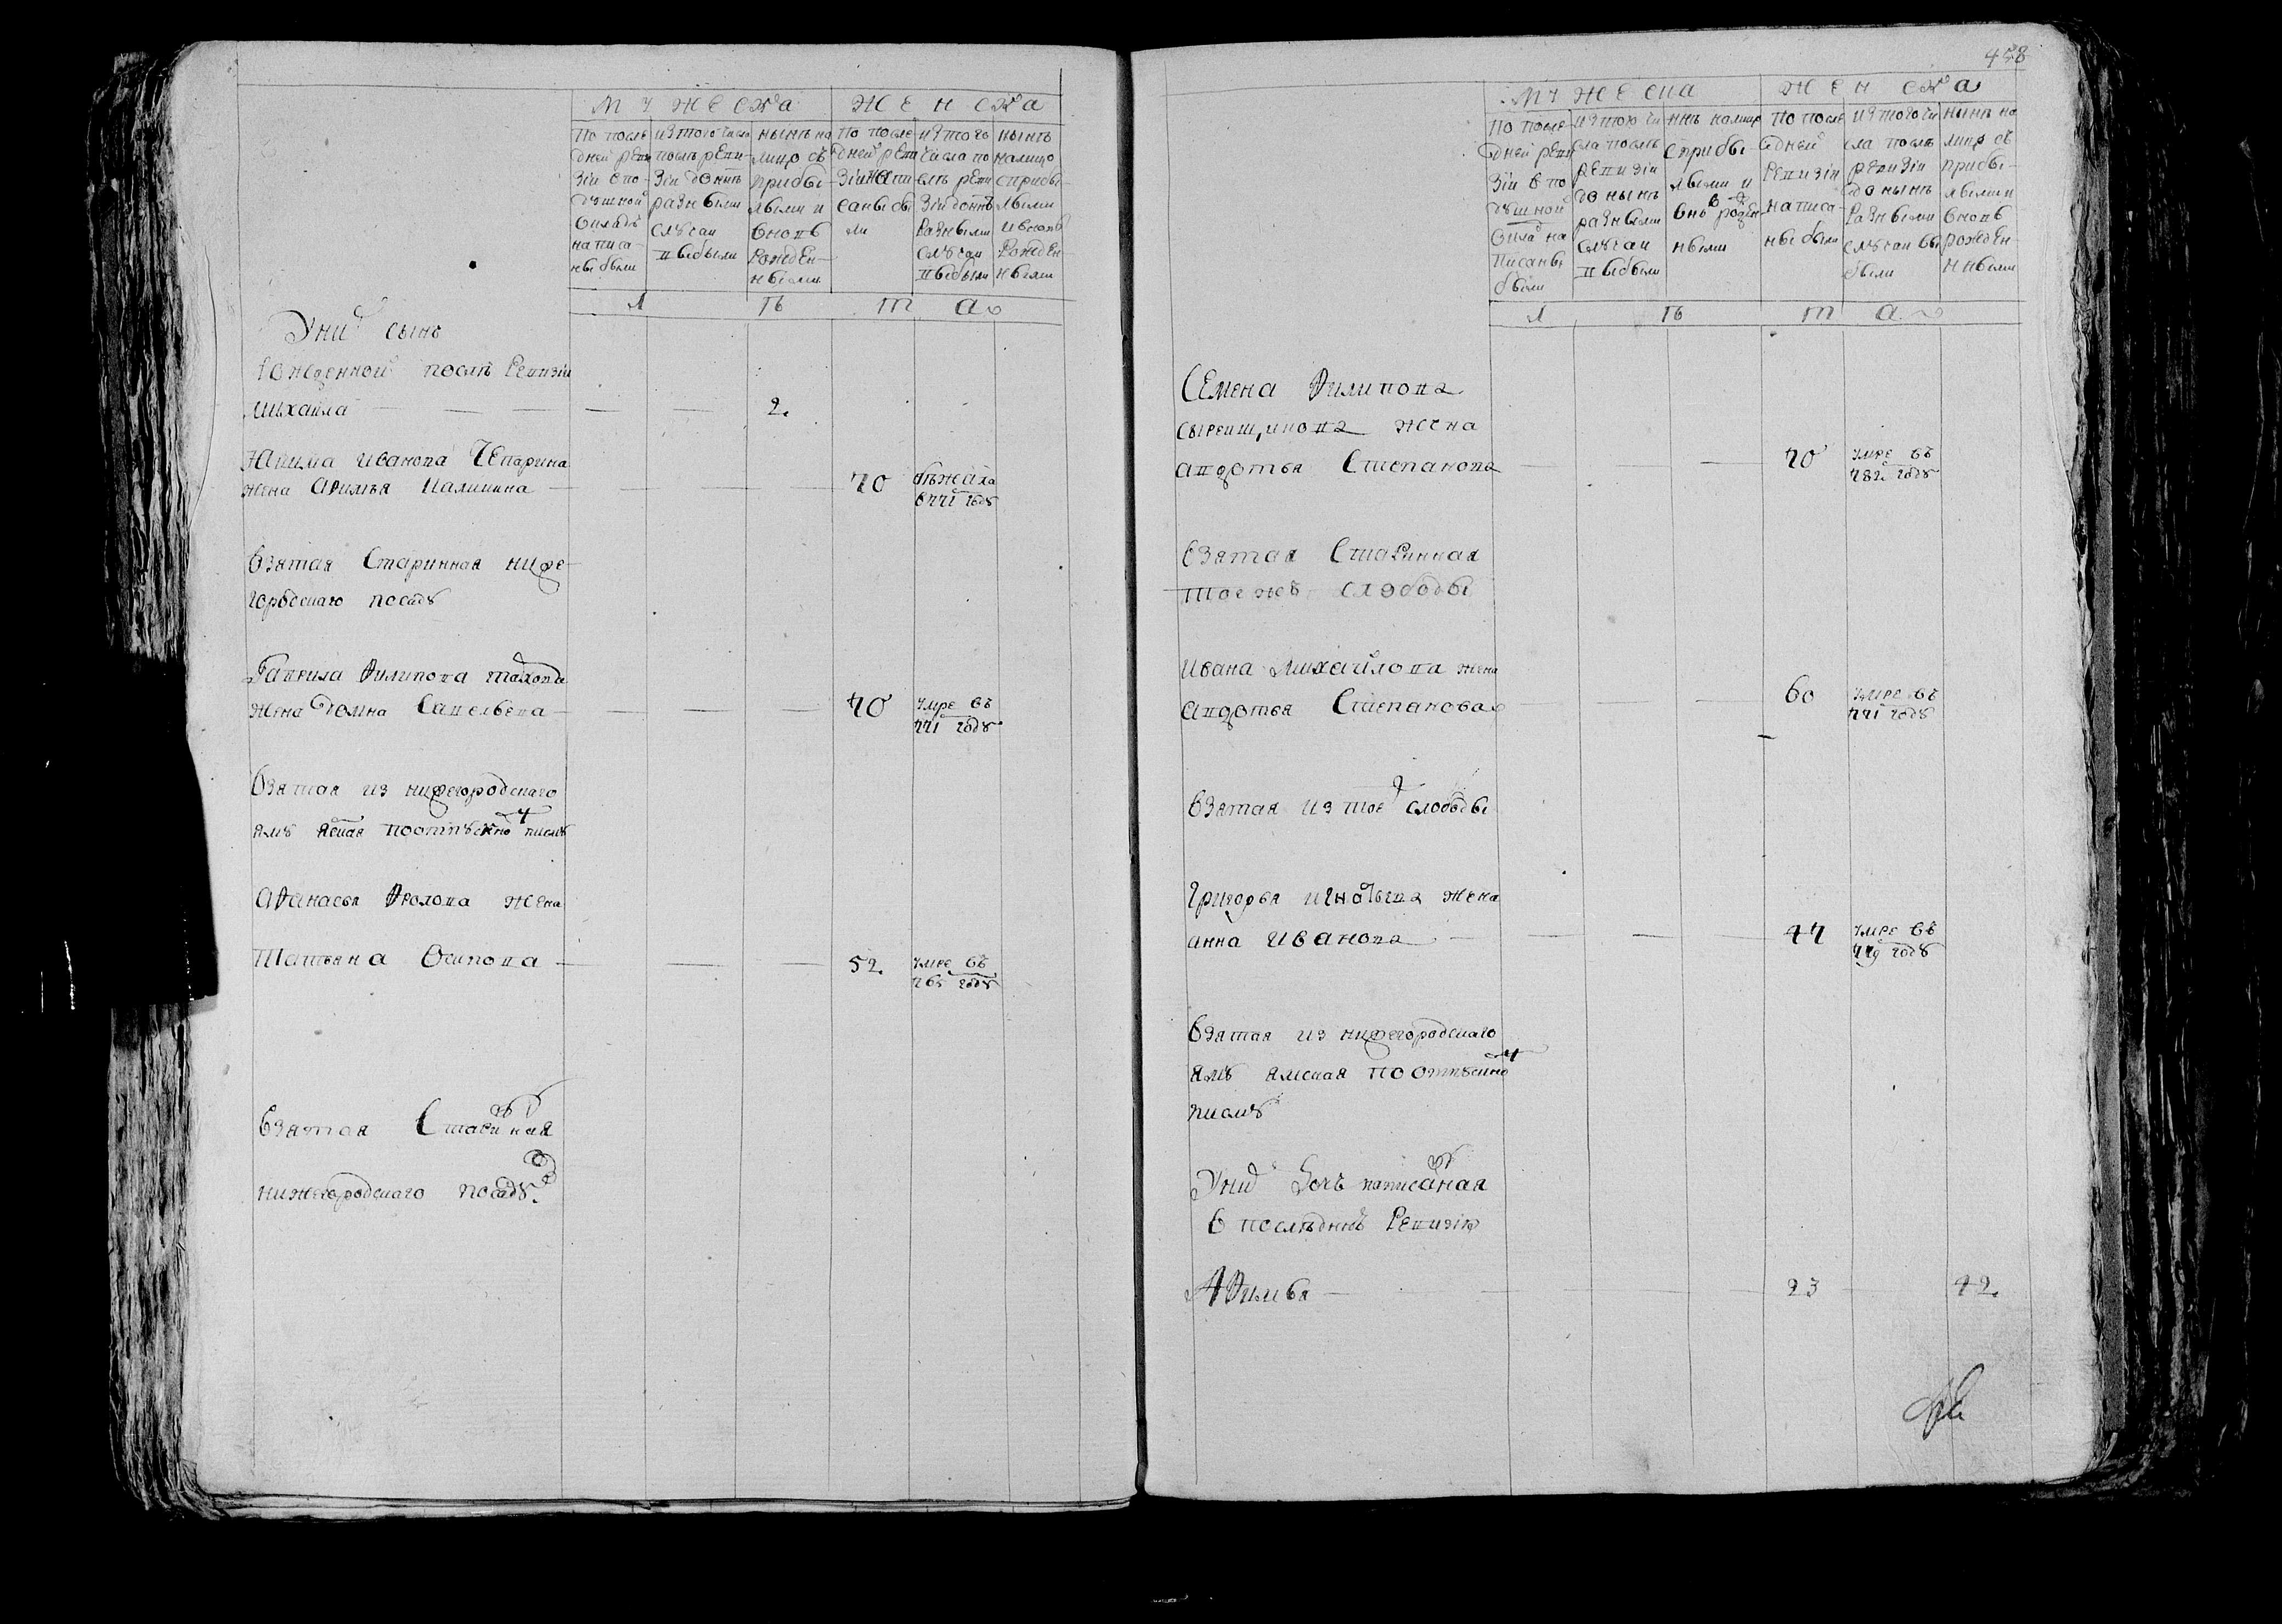 МУЖЕСКА ЖЕНСКА
По после
дней реви
зіи в по
душной
окладъ
написа
ны были
из того числа
послѣ реви
зіи до нынѣ
разными
случаи
выбыли
нынѣ на
лицо съ
прибы
лыми и
вновь
рожден
ными
по после
дней реви
зіи напи
саны бы
ли
из того
числа по
слѣ реви
зіи до ннѣ
разными
случаи
выбыли
нынѣ
налицо
с прибы
лыми
и вновь
рожден
ными
Л ѣ т а
У нихъ сынъ
рожденной послѣ ревизіи
Михаила 2.
Иванова
жена 70 бѣжала
в 771 году
Взятая старинная ниже
городскаго посаду
Гаврила Филипова
жена Домна Савельева 70 умре въ
771 году
Взятая из нижегородскаго
яму ямская по отпускно писмѣ
Афанасья Фролова жена
Татьяна Осипова 52. умре въ
765 году
Взятая старинная
нижегородскаго посаду.
458
МУЖЕСКА ЖЕНСКА
По после
дней реви
зіи в по
душной
окла на
писаны
были
из того чи
сла послѣ
ревизіи
до нынѣ
разными
случаи
выбыли
ннѣ налицо
с прибы
лыми и
внов рожден
ными
по после
дней
ревизіи
написа
ны были
из того чи
сла послѣ
ревизіи
до нынѣ
разными
случаи вы
были
нынѣ на
лицо съ
прибы
лыми и
вновь
рожден
ными
Л ѣ т а
Семена Филипова
жена
Авдотья Степанова 70 умре въ
782 году
Взятая старинная
тое жъ слободы
Ивана Михайлова жена
Авдотья Степановa 60 умре въ
771 году
Взятая из тоеж слободы
Григорья Игнатьева жена
Анна Иванова 47 умре въ
779 году
Взятая из нижегородскаго
яму ямская по отпускно
писмѣ
У них дочь написаная
в последнюю ревизію
Афимья 23 42.